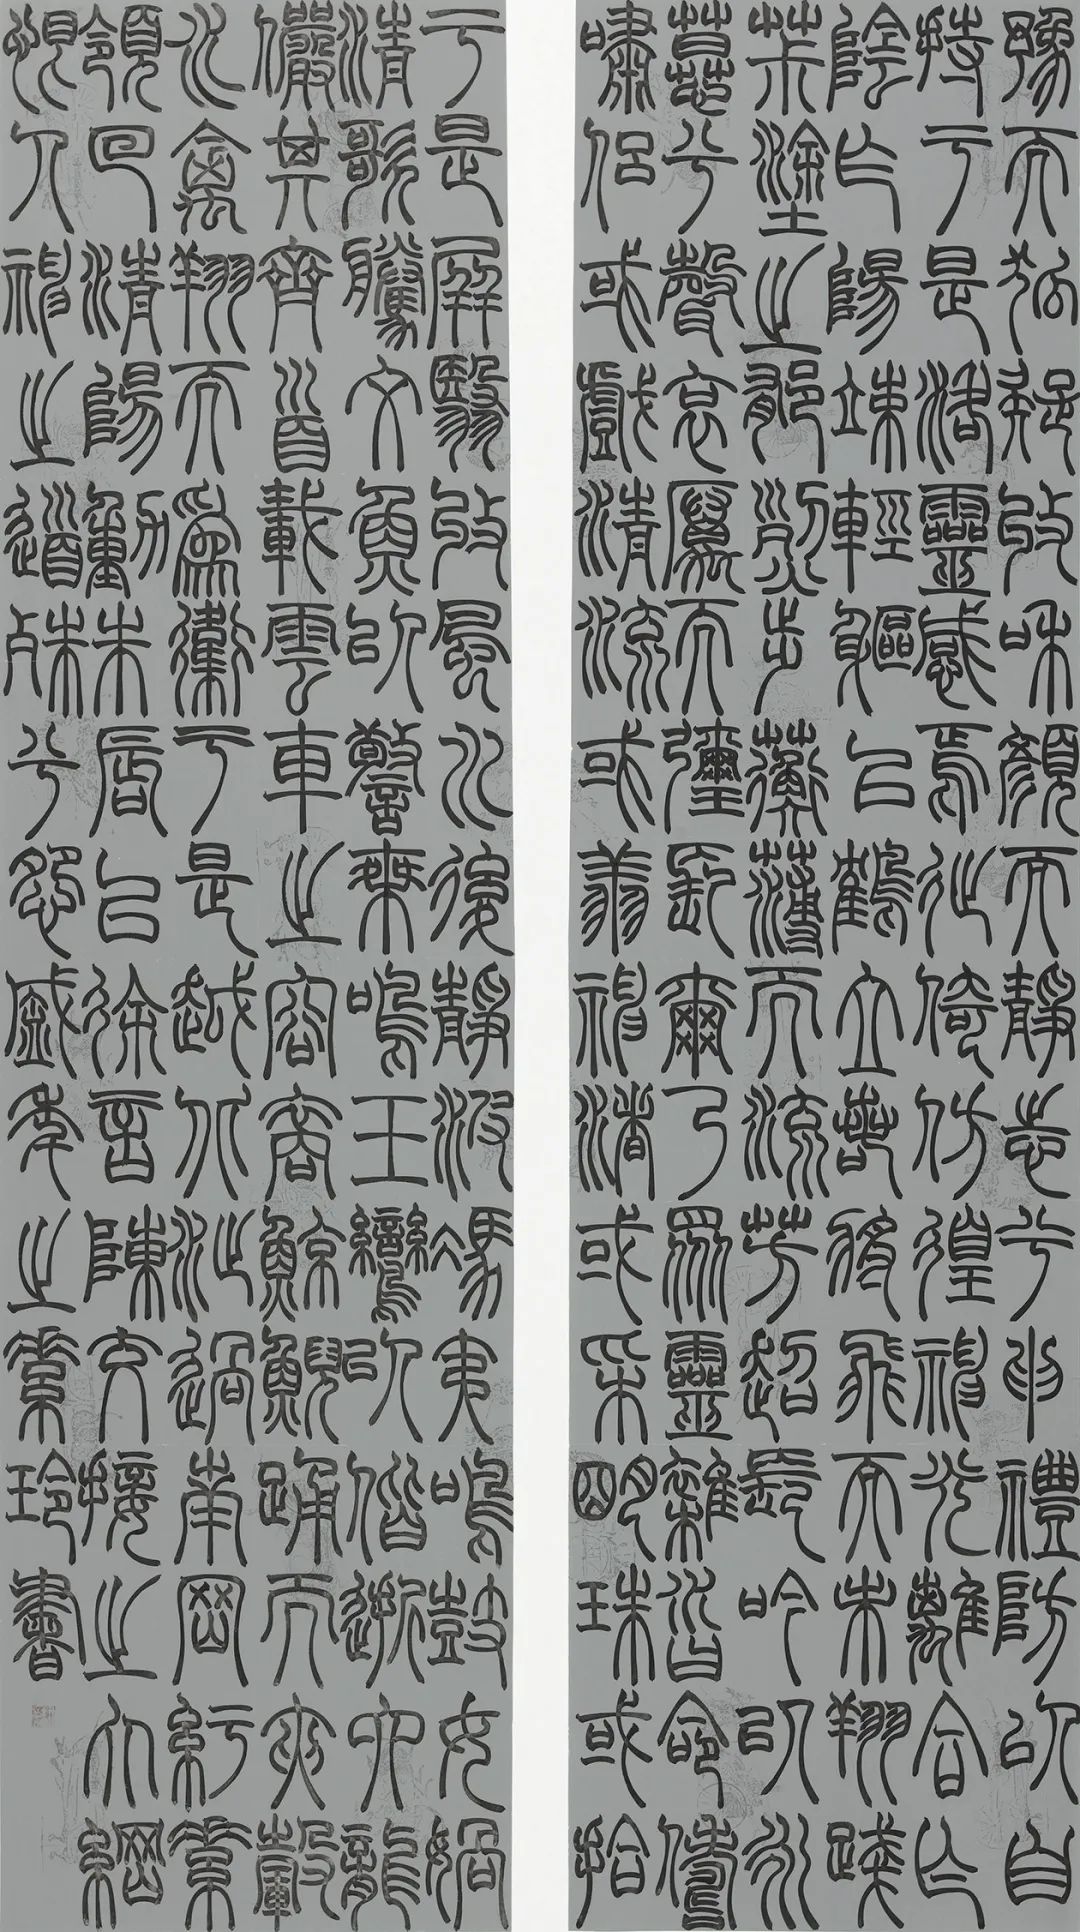 豫而狐疑收和顏而靜志兮申禮防以自
持于是洛靈感焉徙倚彷徨神光離合乍
陰乍陽竦輕軀以鶴立若將飛而未翔踐
茮塗之郁烈步蘅薄而流芳超長吟以永
慕兮聲哀厲而彌長爾乃眾靈雜沓命儔
嘯侶或戲清流或翔神渚或采明珠或拾
于是屏翳收風川後靜波馮夷鳴鼓女媧
清歌騰文魚以警乘鳴玉鸞以偕逝六龍
儼其齊首載雲車之容裔鯨鯢踊而夾轂
水禽翔而為衛于是越北沚過南岡紆素
領回清陽動朱唇以徐言陳交接之大綱
恨人神之道殊兮怨盛年之素玲書